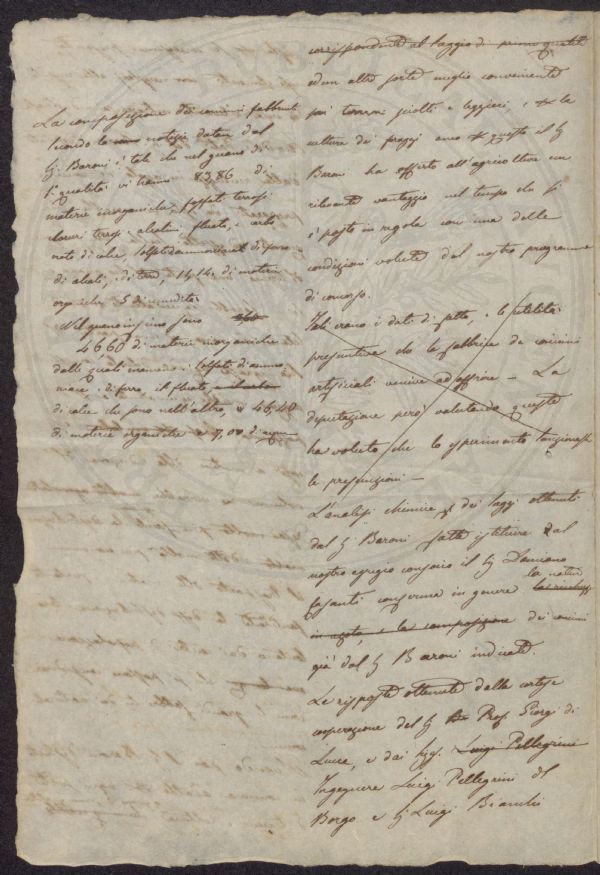 La composizione dei concimi fabbricati
secondo le notizie datene dal
Sig. Baroni è tale che nel guano di
1ª qualità vi hanno 83,86 di
materie inorganiche, fosfati terrosi
cloruri terrosi e alcalini, fluato, e carbo
nato di calce, solfato d'ammoniaca di ferro
di alcali, e di terre, 14,14 di materie
organiche e 5 di umidità
Nel guano infimo sono
46,60 di materie inorganiche
dalle quali mancano i solfati d'ammo
niaca, e di ferro, il fluato, e carbonato
di calce che sono nell'altro, e 46,40
di materie organiche e 7,00 di acqua
corrispondente al saggio di prima qualità
ed un altra sorte meglio conveniente
pei terreni sciolti e leggieri, e la
coltura dei prezzi anno questo il Sig.
Baroni ha offerto all'agricoltura un
rilevante vantaggio nel tempo che si
è posto in regola con una delle
condizioni volute dal nostro programma
di concorso.
Tali erano i dati di fatto, e le utilità
presuntive che la fabbrica di concimi
artificiali veniva ad offrire - La
deputazione però valutando queste
ha voluto che lo sperimento sanzionasse
le presunzioni -
L'analisi chimica dei saggi ottenuti
dal Sig. Baroni fatta istituire dal
nostro egregio consocio il Sig. Damiano
Casanti conferma in genere la natura
in azoto, e la composizione dei concimi
già dal Sig. Baroni indicate.
Le risposte ottenute dalla cortese
cooperazione del Sig. Prof. Giorgi di
Lucca, e dai Sigg. Luigi Pellegrini
Ingegnere Luigi Pellegrini del
Borgo e Sig. Luigi